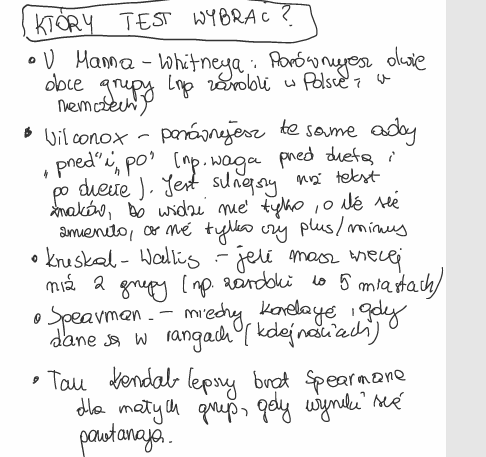 KTÓRY TEST WYBRAĆ?
• U Manna - Whitneya: Porównujesz dwie
obce grupy (np zarobki w Polsce i w
niemczech)
• Wilconox - porównujesz te same osoby
"pned" i "po" (np. waga pned dietą i
po diecie). Jest silniejszy niż tekst
znaków, bo widzi nie tylko, o ile się
zmieniło, a nie tylko czy plus/minus
• Kruskal - Wallis - jeśli masz więcej
niż 2 grupy (np. zarobki w 5 miastach)
• Spearman - mieny korelację, gdy
dane są w rangach (kolejnościach)
• Tau Kendal- lepszy brat Spearmana
dla małych grup, gdy wyniki się
powtarzają.